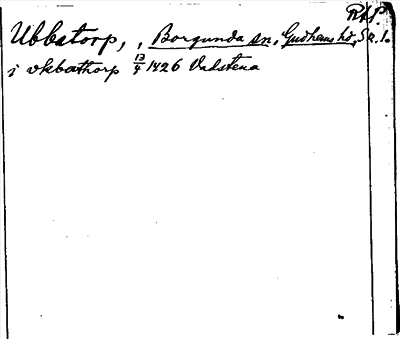 RAP
Ubbetorp, , Borgunda sn, Gudhems hd, Sk.l.
i vkbathorp 13/4 1426 Vadstena